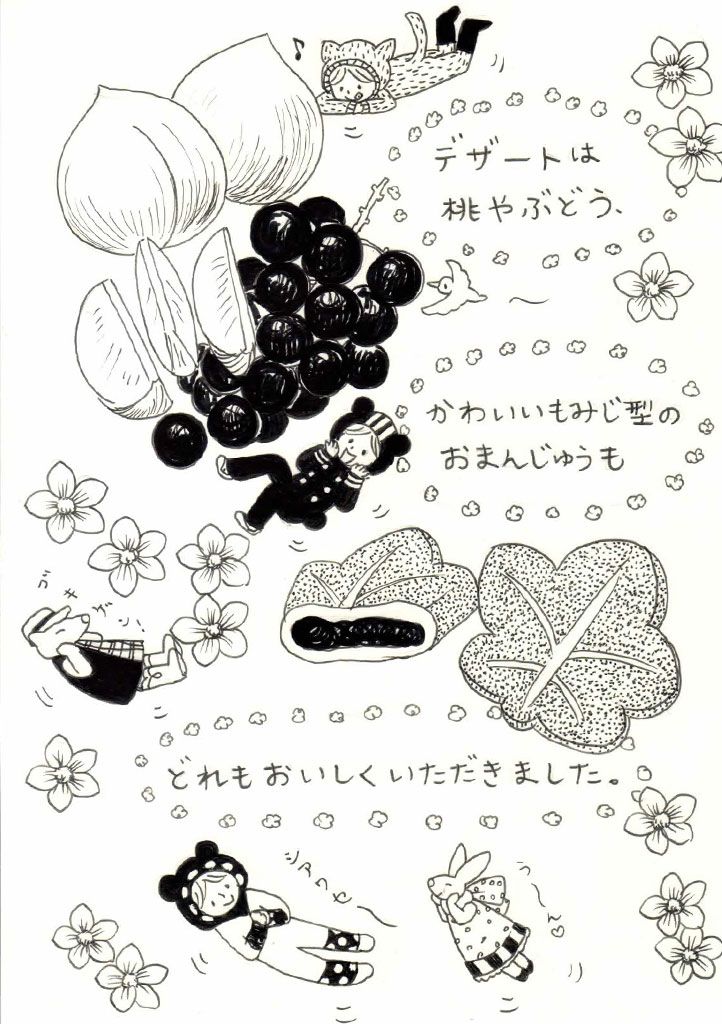 デザートは
桃やぶどう、
かわいいもみじ型の
おまんじゅうも
どれもおいしくいただきました。
シアワセ〜
う〜ん♡